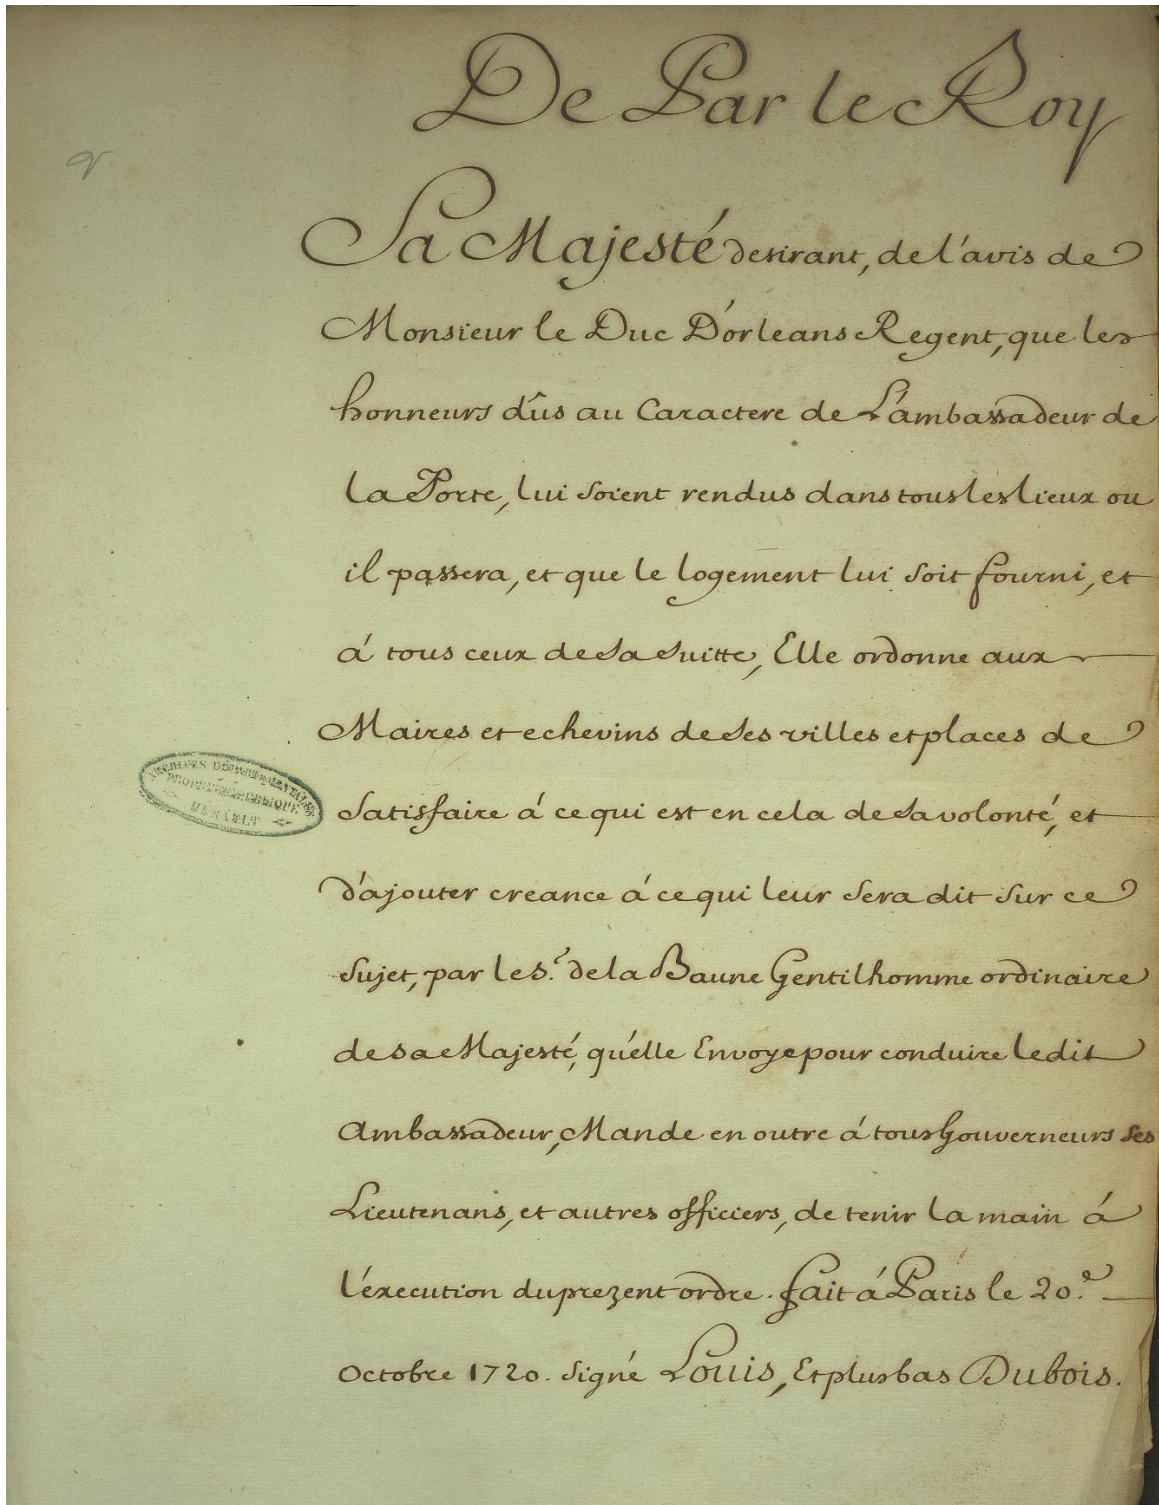 De Par le Roy
Sa Majesté desirant, de l'avis de
Monsieur le Duc D'orleans Regent, que les
honneurs dûs au Caractere de L'ambassadeur de
la Porte, lui soient rendus dans tous les lieux ou
il passera, et que le logement lui soit fourni, et
á tous ceux de sa suitte, Elle ordonne aux
Maires et echevins de ses villes et places de
satisfaire á ce qui est en cela de sa volonté, et
d'ajouter creance á ce qui leur sera dit sur ce
sujet, par le S.r de la Baune Gentilhomme ordinaire
de sa Majesté, qu'elle Envoye pour conduire ledit
Ambassadeur, Mande en outre á tous Gouverneurs ses
Lieutenans, et autres officiers, de tenir la main á
l'éxecution du prezent ordre. fait á Paris le 20.e
Octobre 1720. signé Louis, Et plus bas Dubois.
ARCHIVES DÉPARTEMENTALES
PROPRIÉTÉ PUBLIQUE
HÉRAULT